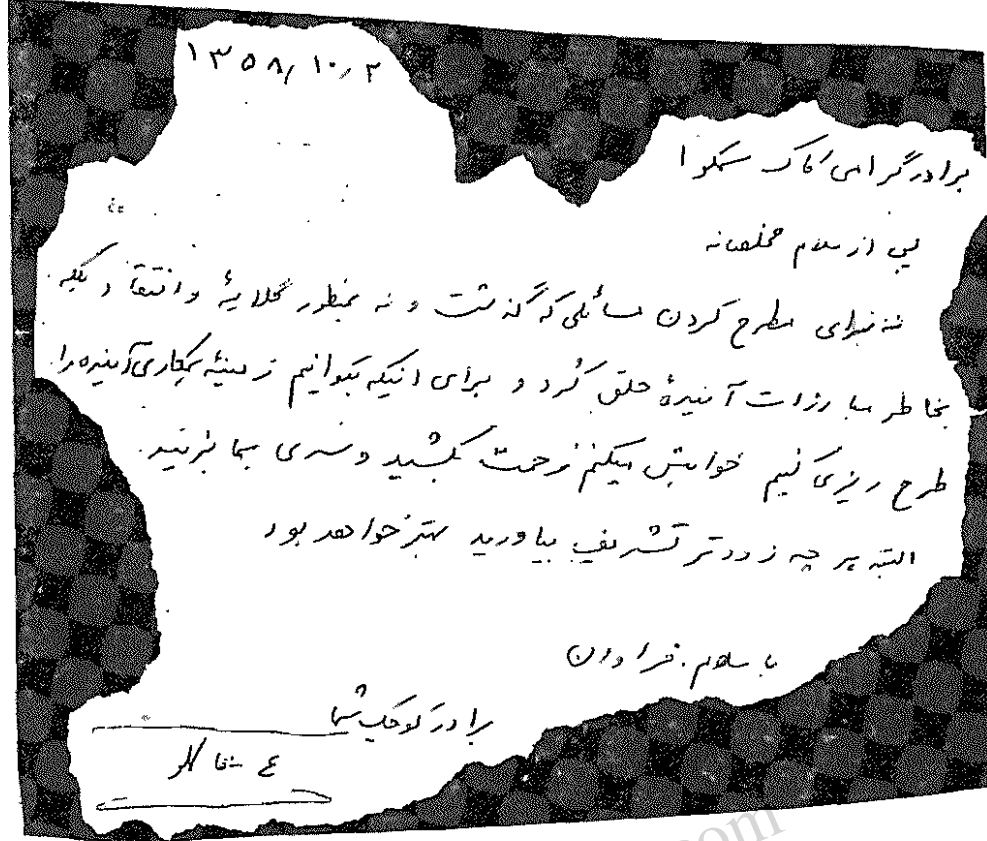 ۱۳۵۸/۱۰/۲
برادر گرامی کاک سمکو ا
پس از سلام مخلصانه
نه برای مطرح کردن مسائلی که گذشت و نه بمنظور گلایهٔ و انتقاد بلکه
بخاطر مبارزات آیندهٔ خلق کرد و برای اینکه بتوانیم زمینهٔ همکاری آینده را
طرح ریزی کنیم خواهش میکنم زحمت بکشید و سری بما بزنید.
البته هر چه زودتر تشریف بیاورید بهتر خواهد بود
با سلام فراوان
برادر کوچک شما
ع
com